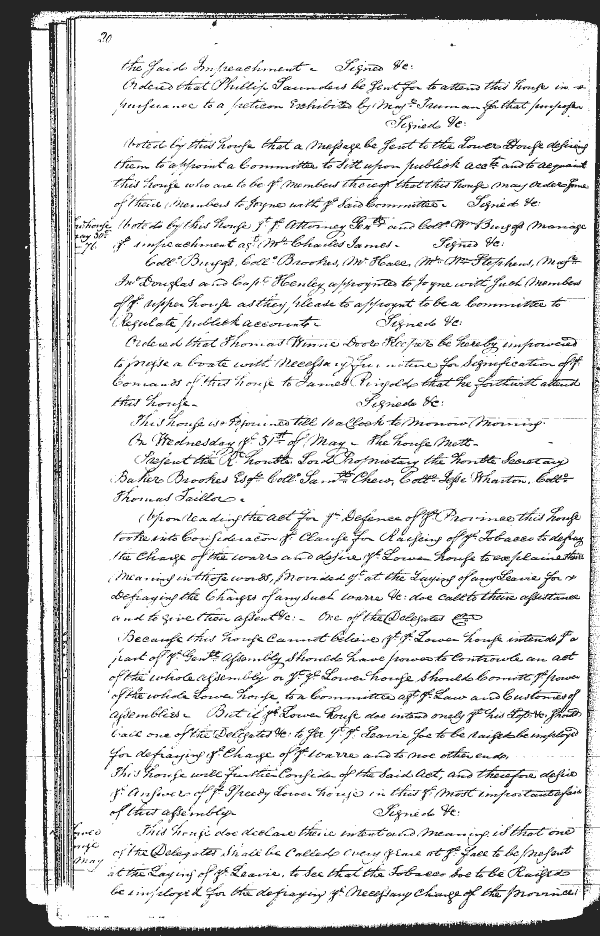 20
the said Impeachment - Signed &c:
Ordered that Phillip Saunders be sent for to attend this house in
pursuance to a peticon Exhibited by Majr Truman for that purpose
Signed &c:
Voted by this house that a message be sent to the Lower House desiring
them to appoint a Committee to Sitt upon publick accts and to acquaint
this house who are to be ye members thereof that this house may order some
of their Members to Joyne with ye said Committee - Signed &c:
Voted by this house yt ye Attorney Genll and Coll Wm Burges Manage
ye impeachment agt Mr Charles James - Signed &c:
Coll Burges, Coll Brookes, Mr Hall, Mr Wm Stephens, Majr
Jno Douglas and Capt Henley appoynted to Joyne with such Members
of ye upper house as they please to appoynt to be a Committee to
Regulate publick accounts - Signed &c:
Ordered that Thomas Winne Door Keeper be hereby impowered
to presse a boate with necessary furniture for Signification of ye
Comands of this house to James Ringold that he forthwith attend
this house - Signed &c:
This house is adjourned till 10 a Clock to Morrow Morning
On Wednesday ye 31th of May - the house Mett -
Present the Rt honble Lord Proprietary the honble Secretary
Baker Brookes Esqr Coll Samll Chew, Coll Jesse Wharton, Coll
Thomas Taillor -
Upon reading the act for ye Defence of ye Province this house
tooke into Consideracon ye Clause for Raising of ye Tobacco to defray
the Charge of the warr and desire ye Lower house to explaine their
Meaning in those words, Provided yt at the Laying of any Leavie for
defraying the Charges of any such warre &c: doe call to their assistance
and to give their assent &c: - One of the Delegates
Because this house Cannot believe yt ye Lower house intends yt a
part of ye Genll Assembly should have power to Controwle an act
of the whole assembly or yt ye Lower house should Comitt ye power
of the whole Lower house to a Committee agt ye Law and Customes of
assemblies - But if ye Lower house doe intend onely yt his Lopp &c: should
call one of the Delegates &c: to see yt ye Leavie soe to be raised be imployed
for defraying ye Charge of ye warre and to noe other ends
This house will further Consider of the said Act, and therefore desire
ye Answer of ye Speedy Lower house in this ye most important affair
of this assembly Signed &c:
This house doe declare their intent and meaning is that one
of the Delegates shall be Called every yeare at ye place to be present
at the Laying of ye Leavie, to See that the Tobacco soe to be Raised
be imployed for the defraying ye Necessary Charge of the Province